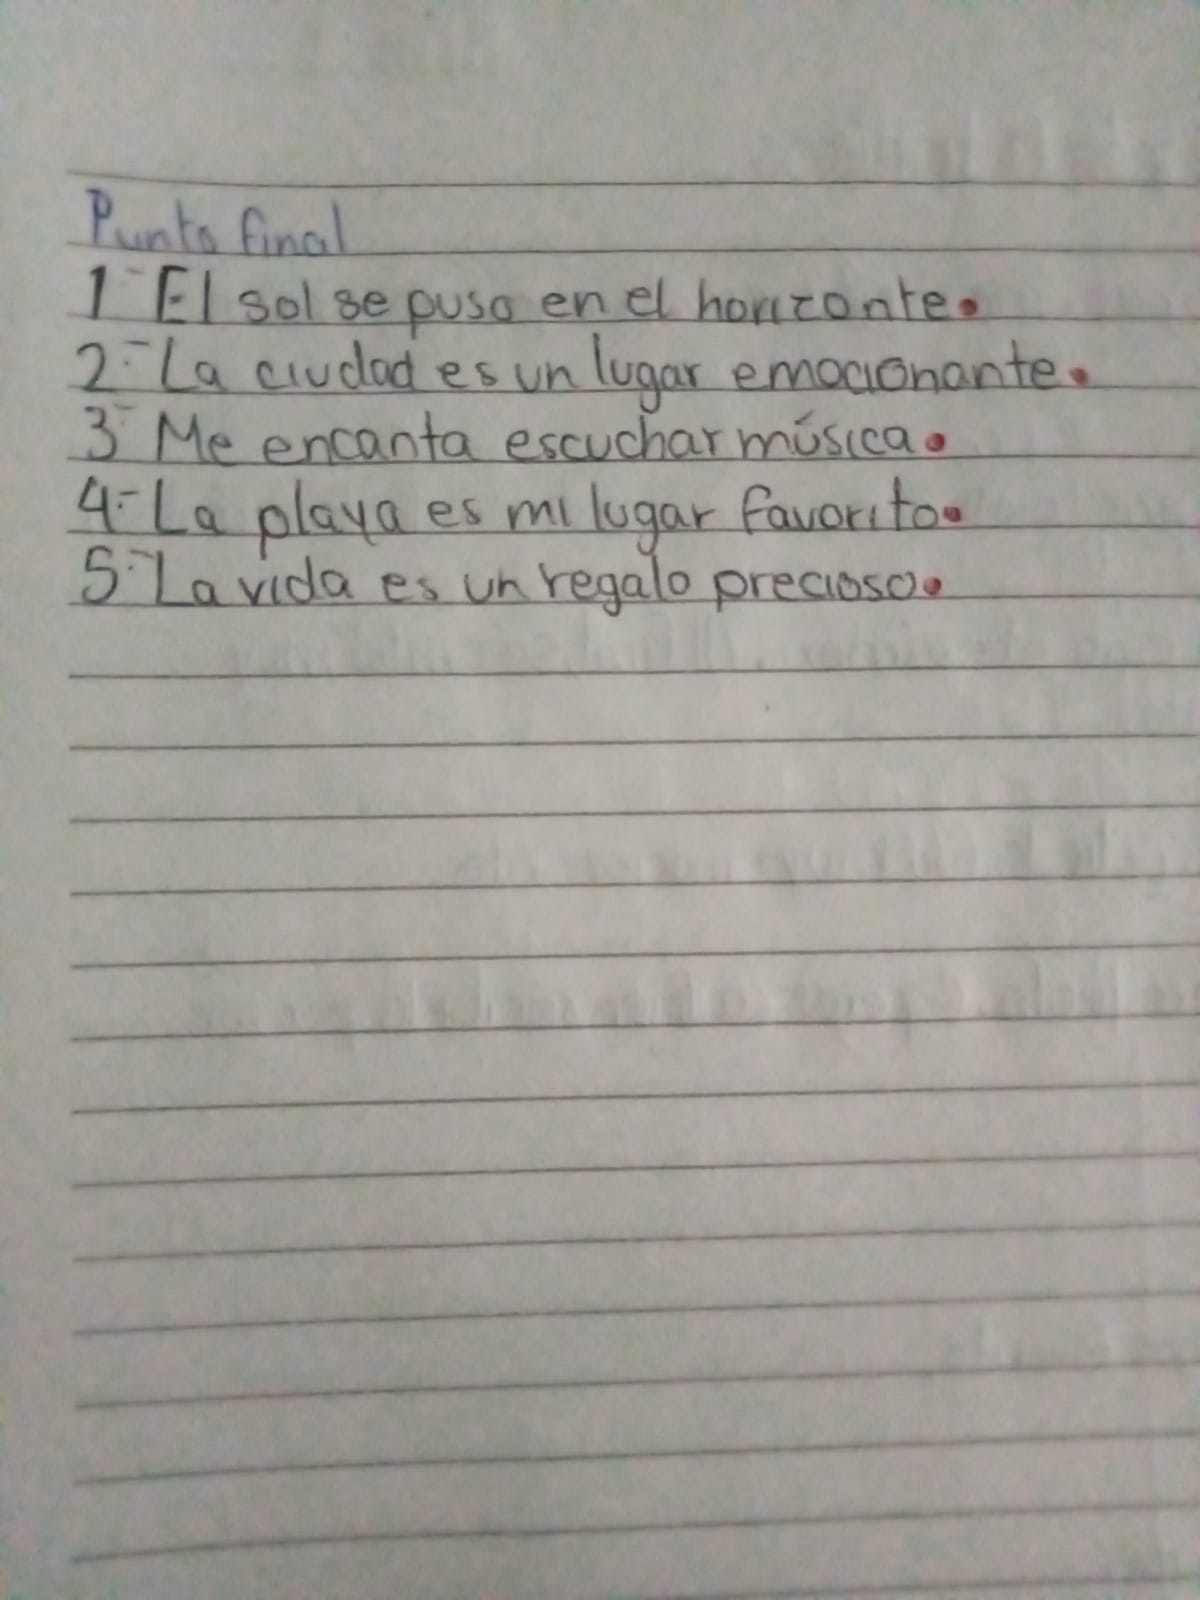 Punto final
1.- El sol se puso en el horizonte.
2.- La ciudad es un lugar emocionante.
3.- Me encanta escuchar música.
4.- La playa es mi lugar favorito.
5.- La vida es un regalo precioso.